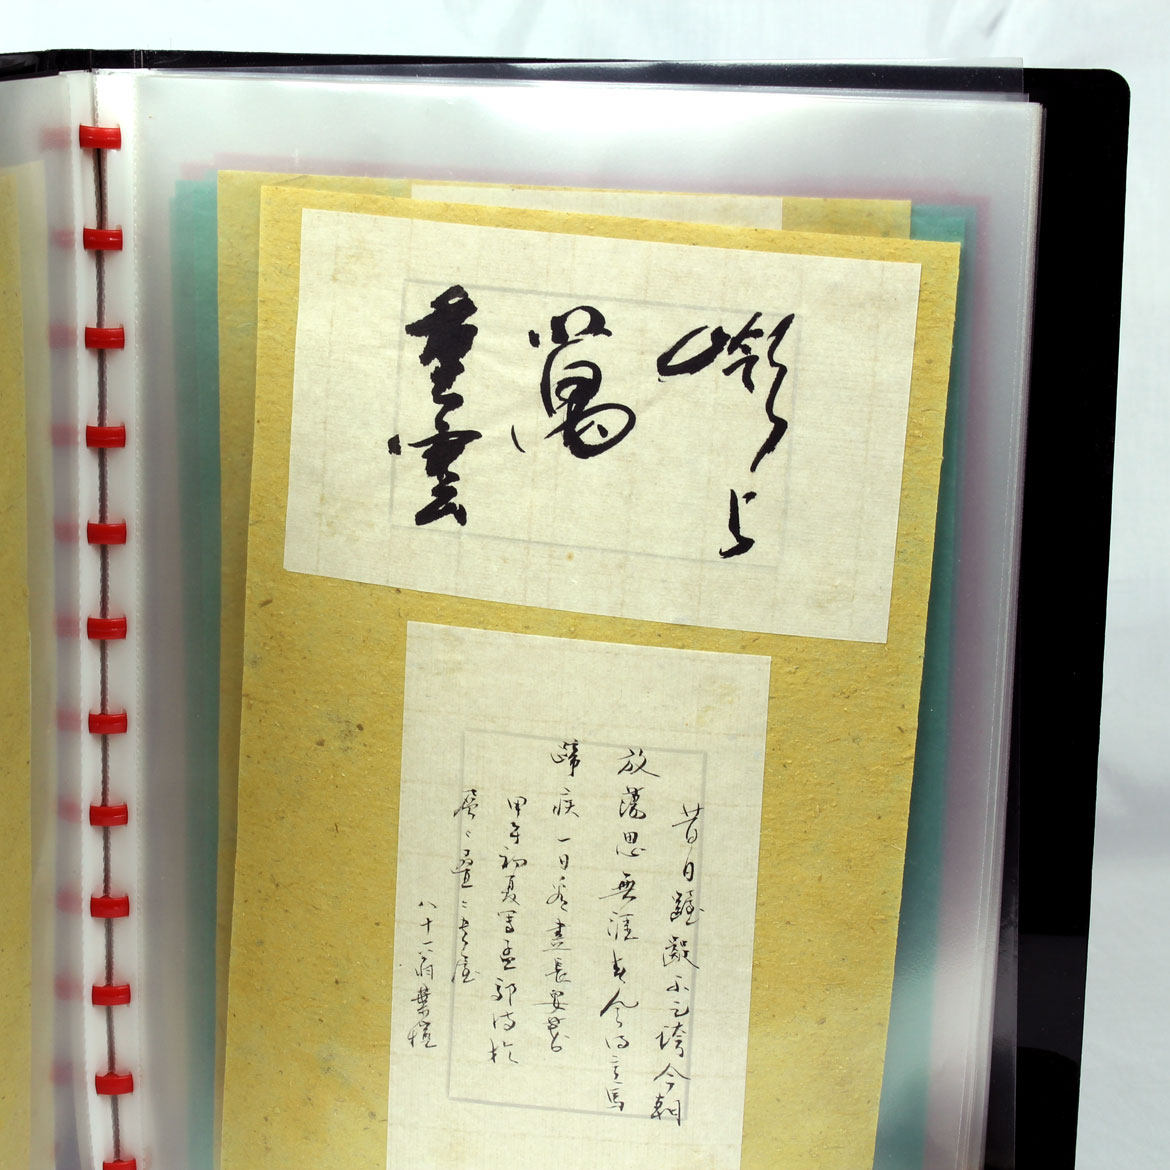 嶺上
萬
重雲
昔日齷齪不足誇今朝
放蕩思無涯春風得意馬
蹄疾一日看盡長安花
甲午初夏寫孟郊诗於
層々疊々書屋
八十一翁葉